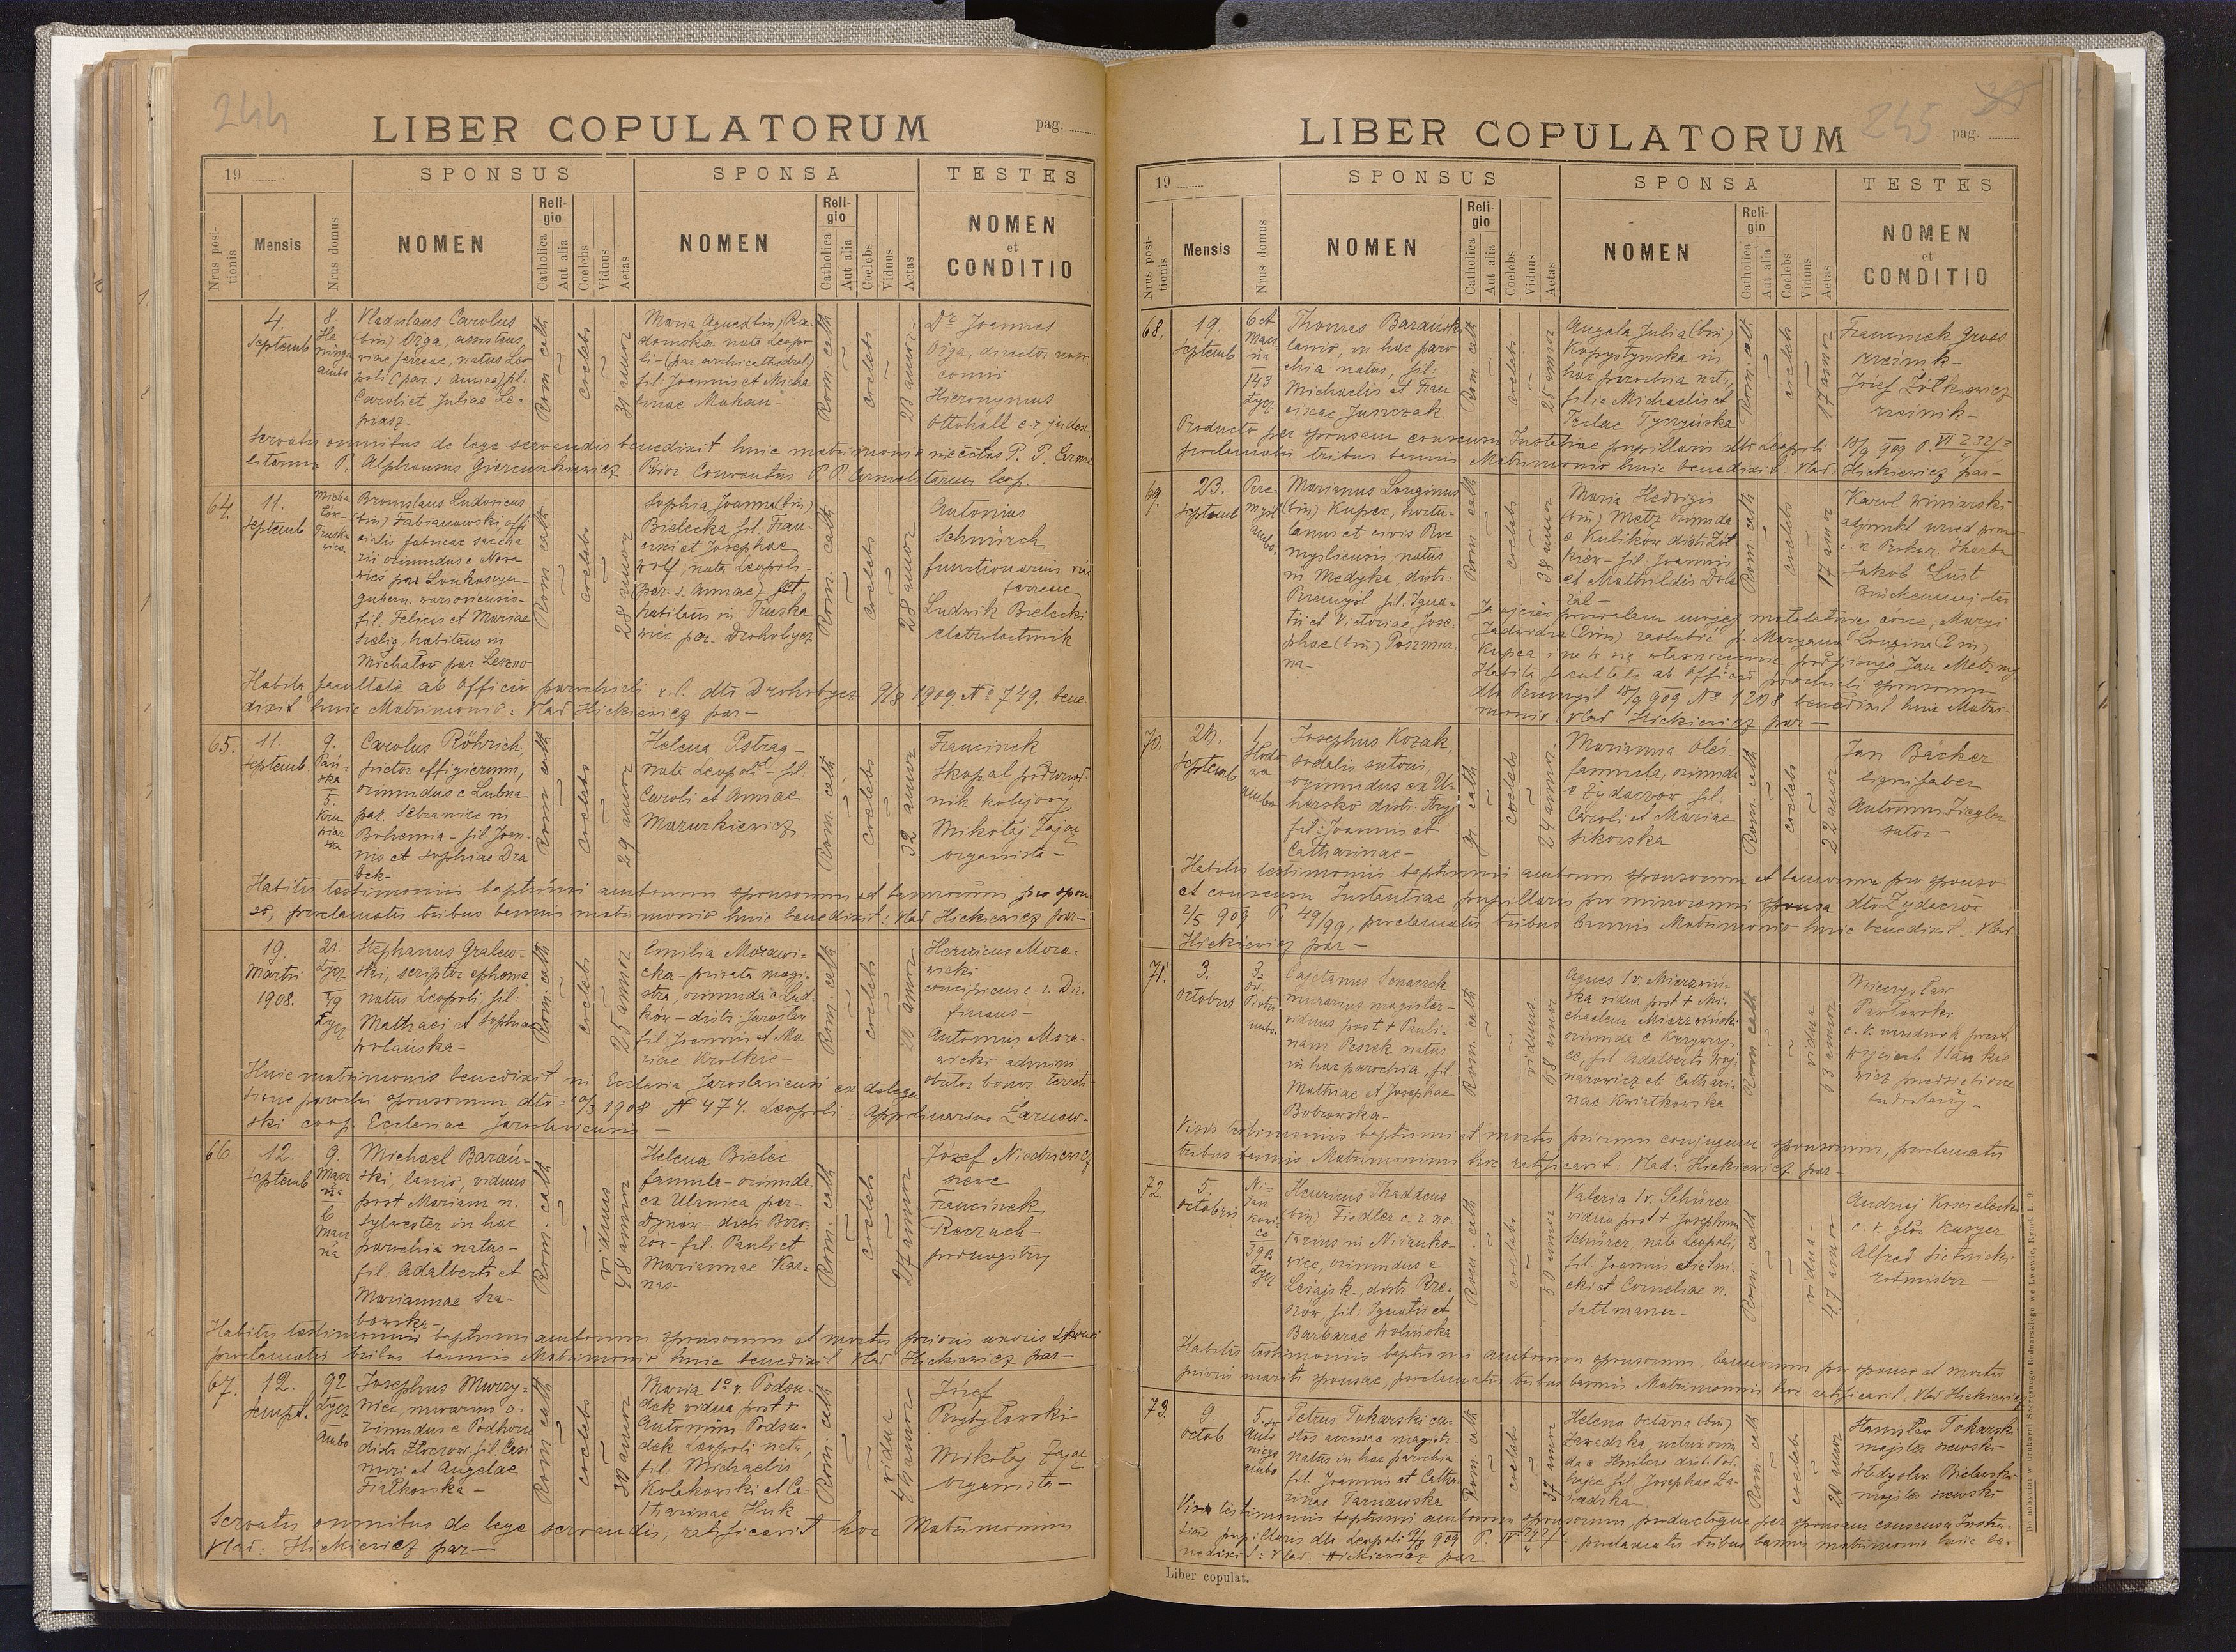 244
LIBER COPULATORUM
pag.
19
SPONSUS
SPONSA
TESTES
Nrus positionis
Mensis
Nrus domus
NOMEN
Religio
Catholica
Aut alia
Coelebs
Viduus
Aetas
NOMEN
Religio
Catholica
Aut alia
Coelebs
Viduus
Aetas
NOMEN
et
CONDITIO
4.
Septemb
8.
ambo
Vladislaus Carolus
(bin) Ożga, assistens,
viae ferreae, natus Leo-
poli (par. s. Annae) fil.
Caroli et Juliae Le-
Rom cath
coelebs
31 annor
Maria Agnes (bin) Ra-
domska nata Leopo-
li - (par. archicathedral)
fil Joannis et Micha
linae Makau-
Rom. cath
coelebs
23 annor.
Dr Joannes
Ożga, director
Hieronymus
Ottohall
Servatis omnibus de lege servandis benedixit huic matrimonio P. P. Carme
litarum P. Alphonsus Prior Conventus P. P. Carmelitarum leop.
64.
11.
Septemb
Micha
łów-
Truska
wiec.
Bronislaus Ludovicus
(bin) Fabianowski, offi
cialis fabricae saccha
rii oriundus e Nowa
wieś par
gubern. warsoviensis-
fil. Felicis et Mariae
Szelig, habitans in
Michałow par Leszno
Rom cath
coelebs
28 annor
Sophia Joanna (bin)
Bielecka fil. Fran-
cisci et Josephae
Wolf, nata Leopoli-
(par. s. Annae)
habitans in Truska
wiec par. Drohobycz
Rom. cath
coelebs
28 annor
Antonius
Schnürch
functionarius viae
ferreae
Ludwik Bielecki
eletrotechnik
Habita facultate ab Officio parochiali r. l. dto Drohobycz 9/8 1909. No 749. bene-
dixit huic Matrimonio: Vlad Hickiewicz par-
65.
11.
Septemb.
9.
Pań-
ska
5.
Carolus Röhrich,
pictor effigierum,
oriundus e Lubna-
par. Sebranice in
Bohemia - fil. Joan-
nis et Sophiae Dra
bek-
Rom cath
coelebs
29 annor
Helena Pstrąg-
nata Leopoli - fil
Caroli et Annae
Mazurkiewicz
Rom. cath
coelebs
32 annor
Francisek
Skopal
kolejowy
Mikołaj Zając
organista-
Habitis testimoniis baptismi amborum sponsorum et bannorum pro spon
so, proclamatis tribus bannis matrimonio huic benedixit: Vlad Hickiewicz par-
19.
Martii
1908.
21.
Łycz
Stephanus Gralew-
ski, scriptor
natus Leopoli, fil.
Matthaei et Sophiae
Wolańska-
Rom. cath
coelebs
25 annor
Emilia Morawi-
cka - privata magi-
stra, oriunda e Lud-
ków - distr Jarosław
fil Joannis et Ma
riae Krotkie-
Rom. cath
coelebs
Henricus Mora-
wicki
Antonius Mora-
wicki admini
strator bonor. terrest-
Huic matrimonio benedixit in Ecclesia Jaroslaviensi ex delega
tione parochi sponsorum dto 1908 N 474. Leopoli Appolinarius Żarnow-
ski coop. Ecclesiae Jaroslaviensis-
66
12.
Septemb
9.
6
Michael Barań-
ski, lanio, viduus
post Mariam n.
Sylwester in hac
parochia natus-
fil. Adalberti et
Mariannae Sza-
bowska-
Rom. cath
viduus
48 annor
Helena Bielec
famula - oriunda
ex Ulanica par-
Dynow - distr Brzo-
zow - fil. Pauli et
Mariannae Kar-
nas-
Rom. cath
coelebs
27 annor
Józef Niedziewicz
szewc
Francisek
Habitis testimoniis baptismi amborum sponsorum et mortis prioris uxoris sponsi
proclamatis tribus bannis Matrimonio huic benedixit Vlad Hickiewicz par-
67.
12.
Septb.
92
Łycz
Ambo
Josephus Murzy-
niec, murarius o-
riundus e Podhorce
distr Złoczow, fil. Casi
miri et Angelae
Fiałkowska-
Rom. cath
coelebs
30 annor
Maria 1o v. Podsu-
dek vidua post +
Antonium Podsu-
dek Leopoli nata,
fil. Michaelis
Kolakowski et Ca-
tharinae Huk
Rom. cath
vidua
46 annor
Józef
Przybyłowski
Mikołaj Zając
organista-
Servatis omnibus de lege servandis, ratificavit hoc Matrimonium
Vlad: Hickiewicz par-
245
LIBER COPULATORUM
pag.
19
SPONSUS
SPONSA
TESTES
Nrus positionis
Mensis
Nrus domus
NOMEN
Religio
Catholica
Aut alia
Coelebs
Viduus
Aetas
NOMEN
Religio
Catholica
Aut alia
Coelebs
Viduus
Aetas
NOMEN
et
CONDITIO
68.
19.
Septemb
143
Łycz
Thomas Barański
lanio, in hac paro
chia natus, fil.
Michaelis et Fran
ciscae Juszczak.
Rom. cath
coelebs
25 annor
Angela Julia (bin)
Kopystyńska in
hac parochia nata,
filia Michaelis et
Teclae Tyszyńska
Rom. cath
coelebs
17 annor
Francisek Gross
rzeźnik-
Józef Żółkiewicz
rzeźnik-
Producto per sponsam consensu Instantiae pupillaris dto Leopoli 10/9 909
proclamatis tribus bannis Matrimonio huic benedixit: Vlad. Hickiewicz par-
69.
23.
Septemb
Prze-
myśl
ambo.
Marianus Longinus
(bin) Kupec, hortu-
lanus et civis Prze
mysliensis, natus
in Medyka, distr.
Przemyśl fil. Igna-
tii et Victoriae Jose-
phae (bin)
Rom cath
coelebs
38 annor
Maria Hedvigis
(bin) Metz oriunda
e Kulików distr Żół
kiew - fil Joannis
et Mathildis
Rom. cath
coelebs
17 annor
Karol Winiarski
adjunkt
Jakob Lust
Ja ojciec pozwalam mojej małoletniej córce, Maryi
Jadwidze (2im) zaślubić p. Maryana Longina (2im)
Kupca i na to się własnoręcznie podpisuję Jan Metz mp
Habita facultate ab Officio parochiali sponsorum
dto Przemyśl 18/9 909 No 1208 benedixit huic Matri-
monio Vlad Hickiewicz par-
70.
Septemb
1.
ambo
Josephus Kozak,
sodalis sutoris,
oriundus ex U-
hersko distr. Stryj
fil. Joannis et
Catharinae-
gr. cath
coelebs
24 annor.
Marianna Oleś
famula, oriunda
e Żydaczow fil.
Caroli et Mariae
Sikorska
Rom. cath
coelebs
22 annor
Jan Bäcker
lignifaber
Antonius Ziegler
sutor-
Habitis testimoniis baptismi amborum sponsorum et bannorum pro sponso
et consensu Instantiae pupillaris pro minorenni sponsa dto Żydaczów
2/5 909 P. 49/99, proclamatis tribus bannis Matrimonio huic benedixit: Vlad
Hickiewicz par-
71.
3.
octobris
3.
św.
Piotra
ambo.
Cajetanus
murarius magister-
viduus post + Pauli-
nam Peszek natus
in hac parochia, fil
Mathiae et Josephae
Bobrowska-
Rom. cath
viduus.
68 annor
Agnes 1v. Mierzwiń-
ska vidua post + Mi-
chaelem Mierzwiński
oriunda e Krzywczy-
ce, fil Adalberti Woj-
narowicz et Cathari-
nae Kwiatkowska
Rom cath
vidua
63 annor
Mieczysław
Pawłowski
Wojciech
Visis testimoniis baptismi et mortis priorum conjugum sponsorum, proclamatis
tribus bannis Matrimonium hoc ratificavit: Vlad: Hickiewicz par-
72.
5.
octobris
Ni-
żan
kowi-
ce
39B
Łycz
Henricus Thaddeus
(bin) Fiedler c. r no-
tarius in Niżanko-
wice, oriundus e
Leżajsk, distr Rze-
szów, fil. Ignatii et
Barbarae Wolińska
Rom. cath
coelebs
50 annor
Valeria 1v. Schürer
vidua post + Josephum
Schürer, nata Leopoli,
fil. Joannis
et Corneliae n.
Sattmann-
Rom. cath
vidua-
47 annor
Andrzej Kościelecki
Alfred
rotmistrz-
Habitis testimoniis baptismi amborum sponsorum, bannorum pro sponso et mortis
prioris mariti sponsae, proclamatis tribus bannis Matrimonium hoc ratificavit. Vlad Hickiewicz
73.
9.
octob
5.
ambo
Petrus Tokarski cu-
stos
natus in hac parochia
fil. Joannis et Catha-
rinae Tarnawska
Rom. cath
coelebs
37 annor
Helena Octavia (bin)
Zawadzka,
fil. Josephae Za-
wadzka
Rom cath
coelebs
20 annor
Stanisław Tokarski
majster szewski-
Władysław Bielawski
majster szewski-
Visis testimoniis baptismi amborum sponsorum, productoque per sponsam consensu Instan-
tiae pupillaris dto Leopoli 909 proclamatis tribus bannis matrimonio huic be-
nedixit: Vlad. Hickiewicz par
Liber copulat.
Do nabycia w drukarni Szczęsnego Bednarskiego we Lwowie, Rynek l. 9.